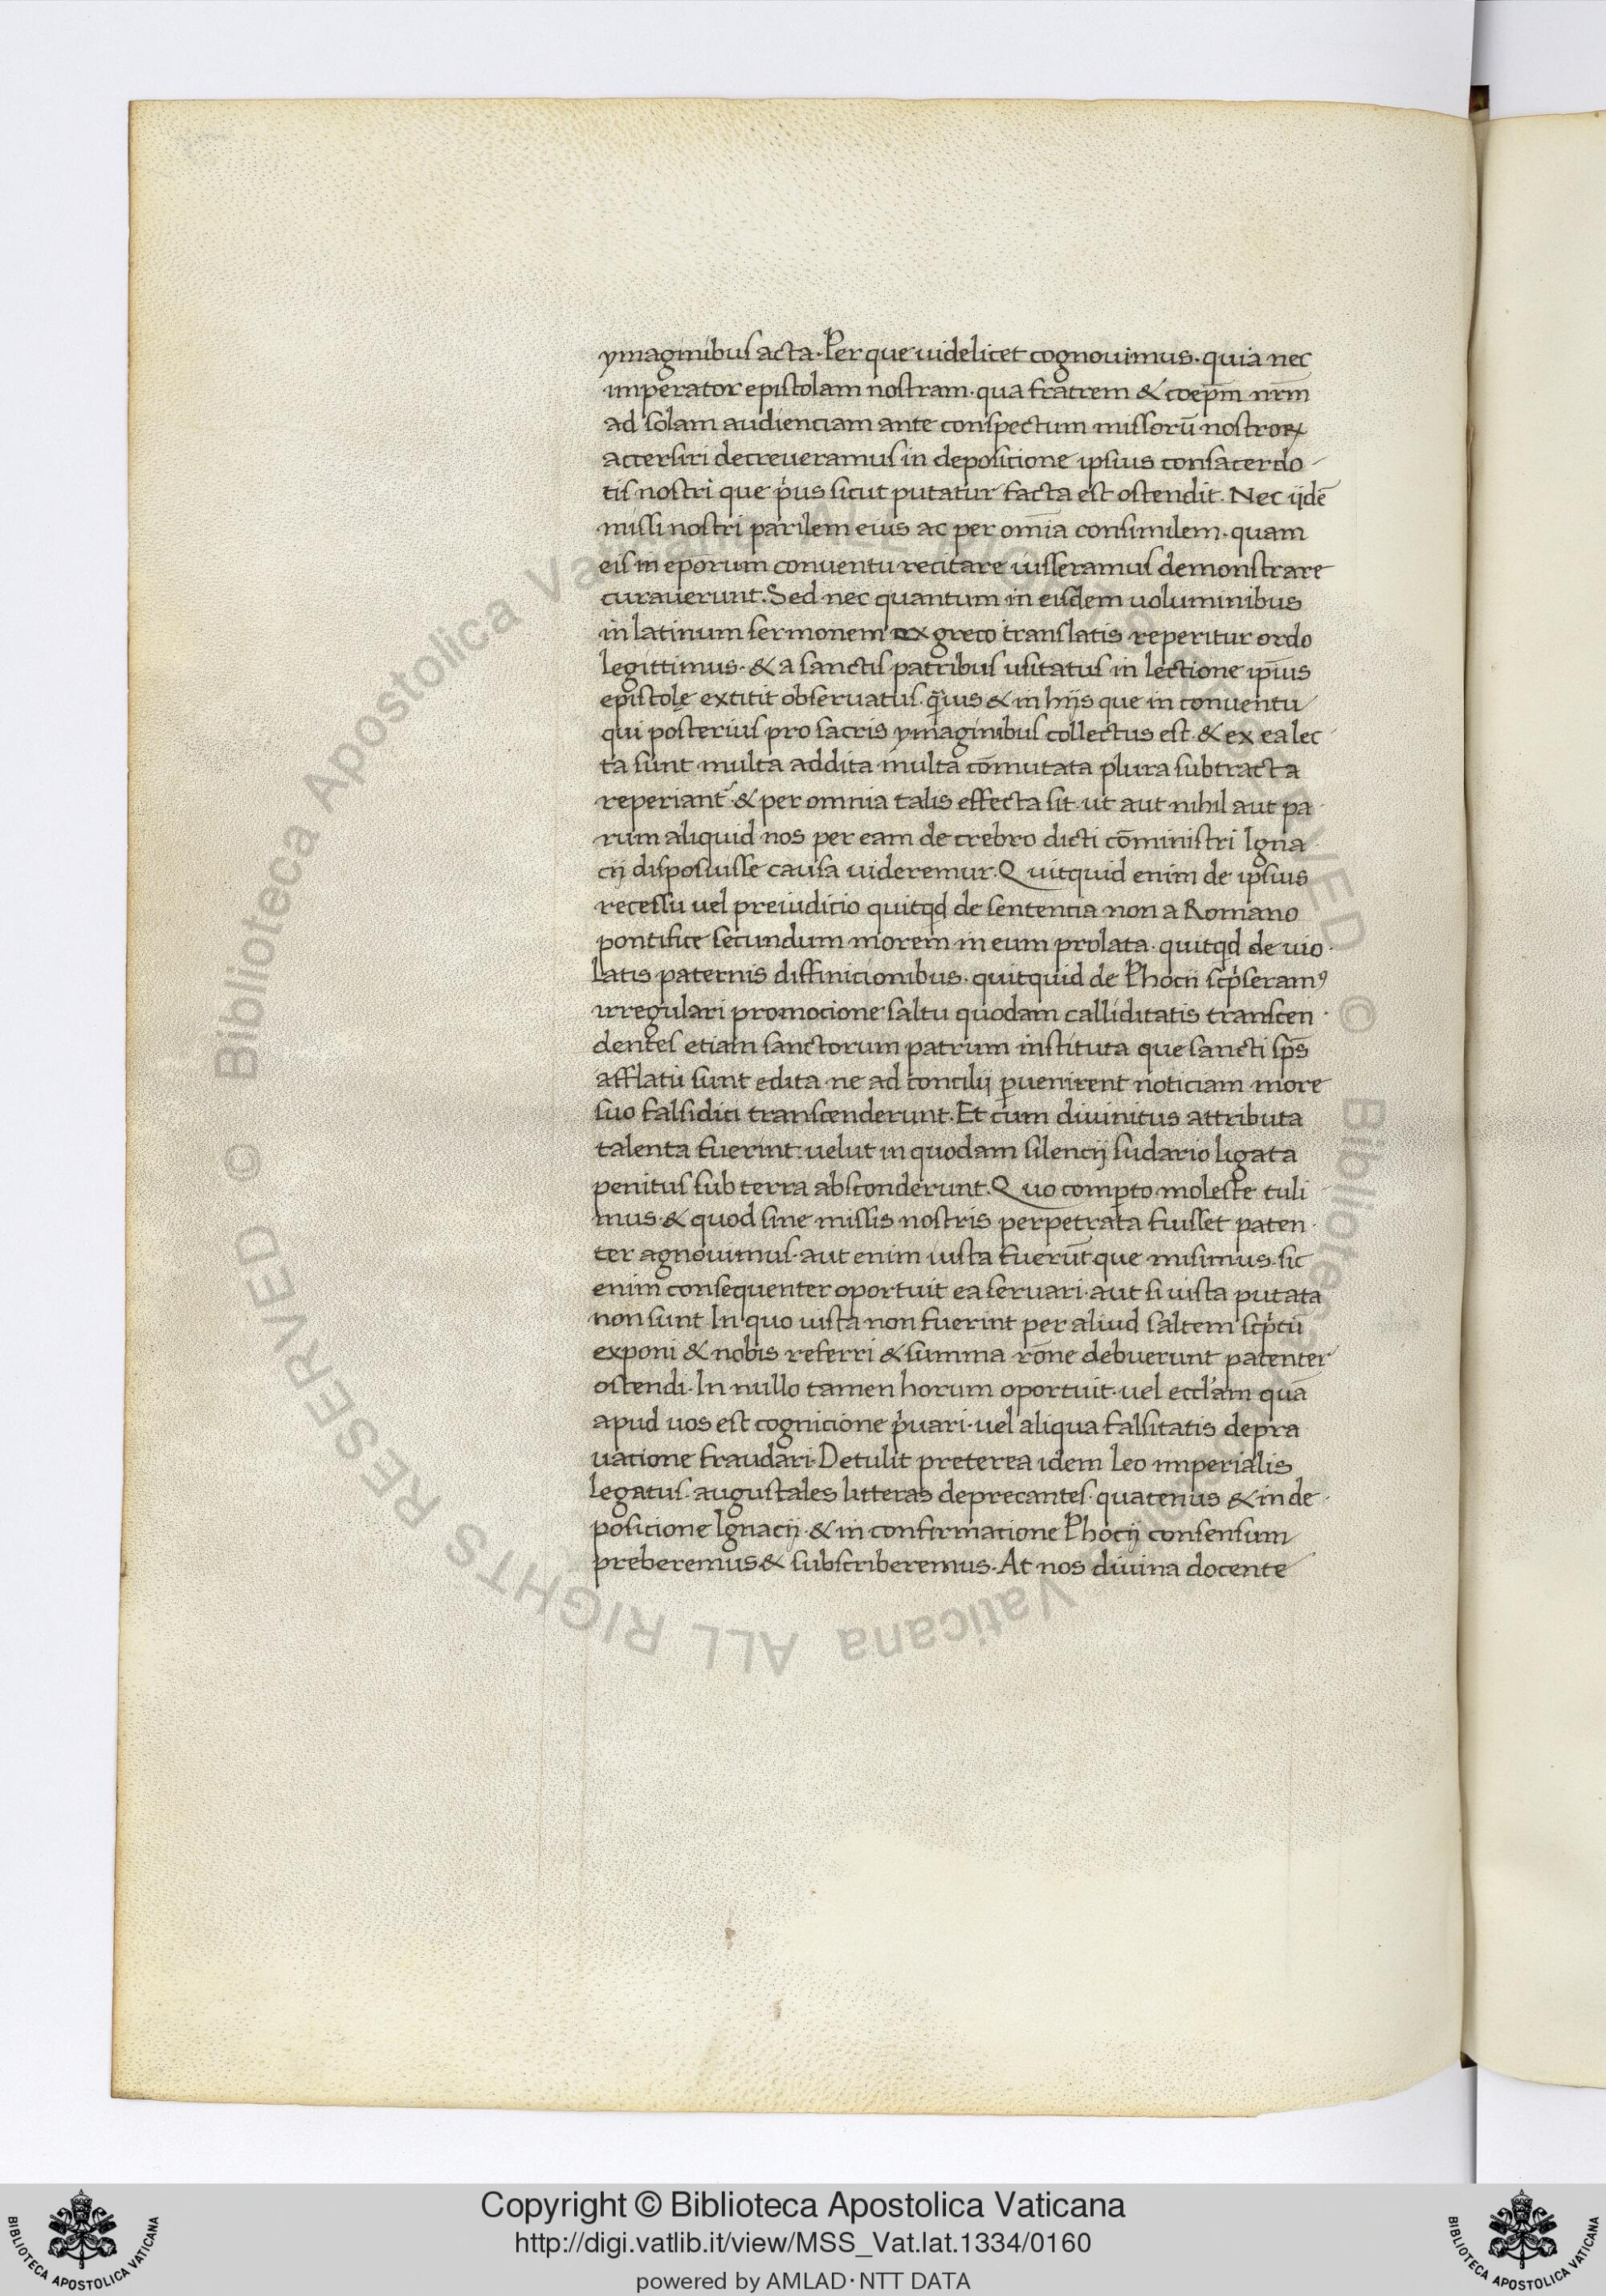 ymaginibus acta. Per que uidelicet cognouimus. quia nec
imperator epistolam nostram. qua fratrem & coepm̄ nrm̄
ad solam audienciam ante conspectum missorū nostroꝝ
accersiri decreueramus in deposicione ipsius consacerdo-
tis nostri que p̓us sicut putatur facta est ostendit. Nec ijdē
missi nostri parilem eius ac per om̄ia consimilem. quam
eis in ep̄orum conuentu recitare iusseramus demonstrare
curauerunt. Sed nec quantum in eisdem uoluminibus
in latinum sermonem ex greco translatis reperitur ordo
legittimus. & a sanctis patribus usitatus in lectione ip̄ius
epistolę extitit obseruatus. q̓ius & in hijs que in conuentu
qui posterius pro sacris ymaginibus collectus est. & ex ea lec-
ta sunt multa addita multa cōmutata plura subtracta
reperiant᷑ & per omnia talis effecta sit. ut aut nihil aut pa-
rum aliquid nos per eam de crebro dicti cōministri Igna-
cij disposuisse causa uideremur. Quitquid enim de ipsius
recessu uel preiudicio quitqd̓ de sentencia non a Romano
pontifice secundum morem in eum prolata. quitqd̓ de uio-
latis paternis diffinicionibus. quitquid de Phocii scp̓seramꝰ
irregulari promocione saltu quodam calliditatis transcen-
dentes etiam sanctorum patrum instituta que sancti sp̄s
afflatu sunt edita ne ad concilij ꝑuenirent noticiam more
suo falsidici transcenderunt. Et cum diuinitus attributa
talenta fuerint: uelut in quodam silencij sudario ligata
penitus sub terra absconderunt. Quo comꝑto moleste tuli-
mus. & quod sine missis nostris perpetrata fuisset paten-
ter agnouimus. aut enim iusta fuerūt que misimus. sic
enim consequenter oportuit ea seruari. aut si iusta putata
non sunt In quo iusta non fuerint per aliud saltem scp̓tū
exponi & nobis referri & summa rōne debuerunt patenter
ostendi. In nullo tamen horum oportuit. uel eccl̓am quā
apud uos est cognicione p̓uari. uel aliqua falsitatis depra
uacione fraudari. Detulit preterea idem Leo imperialis
legatus. augustales litteras deprecantes. quatenus & in de-
posicione Ignacij. & in confirmacione Phocij consensum
preberemus & subscriberemus. At nos diuina docente
© Biblioteca Apostolica Vaticana ALL RIGHTS RESERVED © Biblioteca Apostolica Vaticana ALL RIGHTS RESERVED
Copyright © Biblioteca Apostolica Vaticana
http://digi.vatlib.it/view/MSS_Vat.lat.1334/0160
powered by AMLAD·NTT DATA
BIBLIOTECA APOSTOLICA VATICANA
BIBLIOTECA APOSTOLICA VATICANA